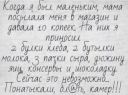 Когда я был маленьким, мама
посылала меня в магазин и
давала 10 копеек. На них я
приносил
2 булки хлеба, 2 бутылки
молока, 3 пачки сыра, дюжину
яиц, консервы и шоколадку.
Сейчас это невозможно...
Понатыкали, блять, камер!!!